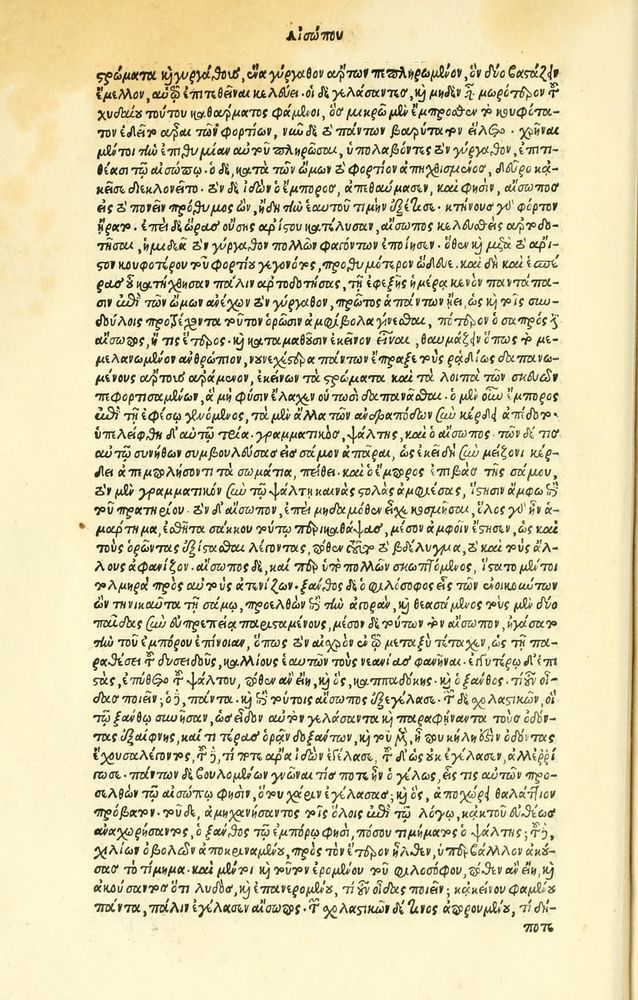 Αἰσώπου
στρώματα καὶ γυργάθους, ἕνα γύργαθον ἄρτων πεπληρωμένον, ὃν δύο βαστάζειν
ἔμελλον, αὐτῷ ἐπιτεθεῖναι κελεύει. οἱ δὲ γελάσαντες, καὶ μηδὲν εἶναι μωρότερον τοῦ
χυδαίου τούτου καθάρματος φάμενοι, ὃς μικρῷ μὲν ἔμπροσθεν τὸ κουφότα-
τον ἐδεῖτο ἆραι τῶν φορτίων, νῦν δὲ τὸ πάντων βαρύτατον εἵλετο. χρῆναι
μέντοι τὴν ἐπιθυμίαν αὐτοῦ πληρῶσαι, ὑπολαβόντες τὸν γύργαθον, ἐπιτι-
θέασι τῷ αἰσώπῳ. ὁ δὲ, κατὰ τῶν ὤμων τὸ φορτίον ἀπηχθισμένος, δεῦρο κἀ-
κεῖσε διεκλονεῖτο. τὸν δὲ ἰδὼν ὁ ἔμπορος, ἀπεθαύμασεν, καὶ φησὶν, αἴσωπος
εἰς τὸ πονεῖν πρόθυμος ὢν, ἤδη τὴν ἑαυτοῦ τιμὴν ἐξέτισε. κτήνους γὰρ φόρτον
ἦρεν. ἐπεὶ δὲ ὥρας οὔσης ἀρίστου κατέλυσαν, αἴσωπος κελευσθεὶς ἀρτοδο-
τῆσαι, ἡμιδεᾶ τὸν γύργαθον πολλῶν φαγόντων ἐποίησεν. ὅθεν καὶ μετὰ τὸ ἄρι-
στον κουφοτέρου τοῦ φορτίου γεγονότος, προθυμότερον ὥδευε. καὶ δὴ καὶ ἑσπέ
ρας οὗ κατήχθησαν πάλιν ἀρτοδοτήσας, τῇ ἐφεξῆς ἡμέρᾳ κενὸν παντάπα-
σιν ἐπὶ τῶν ὤμων ἀνέχων τὸν γύργαθον, πρῶτος ἁπάντων ᾔει, ὡς καὶ τοῖς συν-
δούλοις προτρέχοντα τοῦτον ὁρῶσιν ἀμφίβολα γίνεσθαι, πότερον ὁ σαπρός ἐστιν
αἴσωπος, ἤ τις ἕτερος. καὶ καταμαθοῦσιν ἐκεῖνον εἶναι, θαυμάζειν ὅπως τὸ με-
μελανωμένον ἀνθρώπιον, νουνεχέστερα πάντων ἔπραξε τοὺς ῥᾳδίως δαπανω-
μένους ἄρτους ἀράμενον, ἐκείνων τὰ στρώματα καὶ τὰ λοιπὰ τῶν σκευῶν
πεφορτισμένων, ἃ μὴ φύσιν ἔλαχεν οὕτωσὶ δαπανᾶσθαι. ὁ μὲν οὖν ἔμπορος
ἐπὶ τῇ ἐφέσῳ γενόμενος, τὰ μὲν ἄλλα τῶν ἀνδραπόδων σὺν κέρδει ἀπέδοτο.
ὑπελείφθη δ' αὐτῷ τρία. γραμματικὸς, ψάλτης, καὶ ὁ αἴσωπος. τῶν δέ τις
αὐτῷ συνήθων συμβουλεύσας εἰς σάμον ἀπᾶραι, ὡς ἐκεῖ δὴ σὺν μείζονι κέρ-
δει ἀπεμπολήσοντι τὰ σωμάτια, πείθει. καὶ ὁ ἔμπορος ἐπιβὰς τῆς σάμου,
τὸν μὲν γραμματικὸν σὺν τῷ ψάλτῃ καινὰς στολὰς ἀμφιέσας, ἵστησιν ἄμφω ἐπὶ
τοῦ πρατηρίου. τὸν δ' αἴσωπον, ἐπεὶ μηδαμόθεν εἶχε κοσμῆσαι, ὅλος γὰρ ἦν ἁ-
μάρτημα, ἐσθῆτα σάκκου τούτῳ περικαθάψας, μέσον ἀμφοῖν ἔστησεν, ὡς καὶ
τοὺς ὁρῶντας ἐξίστασθαι λέγοντας, πόθεν τοῦτο τὸ βδέλυγμα, τὸ καὶ τοὺς ἄλ-
λους ἀφανίζον. αἴσωπος δὲ, καί περ ὑπὸ πολλῶν σκωπτόμενος, ἵστατο μέντοι
τολμηρὰ πρὸς αὐτοὺς ἀτενίζων. ξάνθος δὲ ὁ φιλόσοφος εἷς τῶν οἰκούντων
ὢν τηνικαῦτα τῇ σάμῳ, προελθὼν ἐπὶ τὴν ἀγορὰν, καὶ θεασάμενος τοὺς μὲν δύο
παῖδας σὺν εὐπρεπείᾳ παρισταμένους, μέσον δὲ τούτων τὸν αἴσωπον, ἠγάσατο
τὴν τοῦ ἐμπόρου ἐπίνοιαν, ὅπως τὸν αἰσχρὸν ἐν τῷ μεταξὺ τέταχεν, ὡς τῇ πα-
ραθέσει τοῦ δυσειδοῦς, καλλίους ἑαυτῶν τοὺς νεανίας φανῆναι. ἐγγυτέρω δ' ἐπι
στὰς, ἐπύθετο τοῦ ψάλτου, πόθεν ἂν εἴη, καὶ ὃς, καππαδόκης. καὶ ὁ ξάνθος. τί οὖν οἶ-
δας ποιεῖν; ὁ δὲ, πάντα. καὶ ἐπὶ τούτοις αἴσωπος ἐξεγέλασε. τῶν δὲ σχολαστικῶν, οἳ
τῷ ξάνθῳ συνῆσαν, ὡς εἶδον αὐτὸν γελάσαντα καὶ παραφήναντα τοὺς ὀδόν-
τας ἐξαίφνης, καί τι τέρας ὁρᾶν δοξάντων, καὶ τοῦ μὲν, ἦ που κήλη ἐστὶν ὀδόντας
ἔχουσα λέγοντος, τοῦ δὲ, τί ποτε ἄρα ἰδὼν ἐγέλασε, τοῦ δὲ ὡς οὐκ ἐγέλασεν, ἀλλ' ἐρρί
γωσε. πάντων δὲ βουλομένων γνῶναι τίς ποτε ἦν ὁ γέλως, εἷς τις αὐτῶν προ-
σελθὼν τῷ αἰσώπῳ φησὶν, ὅτου χάριν ἐγέλασας; καὶ ὃς, ἀποχώρει θαλάττιον
πρόβατον. τοῦ δὲ, ἀμηχανήσαντος τοῖς ὅλοις ἐπὶ τῷ λόγῳ, κἀκ τοῦ εὐθέως
ἀναχωρήσαντος, ὁ ξάνθος τῷ ἐμπόρῳ φησὶ, πόσου τιμήματος ὁ ψάλτης; τοῦ δὲ,
χιλίων ὀβολῶν ἀποκριναμένου, πρὸς τὸν ἕτερον ἦλθεν, ὑπέρβαλλον ἀκού-
σας τὸ τίμημα. καὶ μέντοι καὶ τοῦτον ἐρομένου τοῦ φιλοσόφου, πόθεν ἂν εἴη, καὶ
ἀκούσαντος ὅτι λυδὸς, καὶ ἐπανερομένου, τί οὖν οἶδας ποιεῖν; κἀκείνου φαμένου
πάντα, πάλιν ἐγέλασεν αἴσωπος. τῶν σχολαστικῶν δέ τινος ἀπορουμένου, τί δή-
ποτε